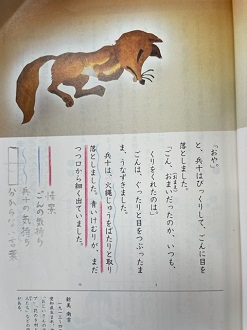 「おや。」
と、兵十はびっくりして、ごんに目を
落としました。
「ごん、おまいだったのか、いつも、
くりをくれたのは。」
ごんは、ぐったりと目をつぶったま
ま、うなずきました。
兵十は、火縄じゅうをばたりと取り
落としました。青いけむりが、まだ
つつ口から細く出ていました。
ごんの気持ち
兵十の気持ち
分からない言葉
新美 南吉